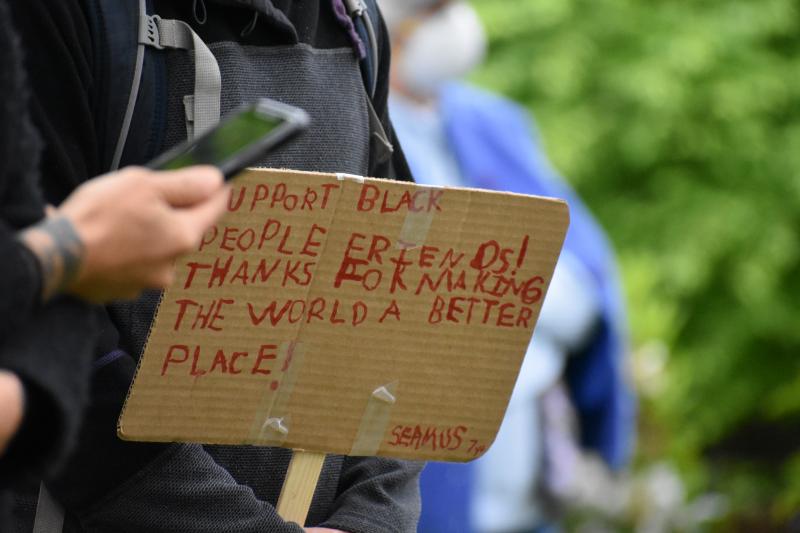 UPPORT BLACK
PEOPLE FRIENDS!
THANKS FOR MAKING
THE WORLD A BETTER
PLACE!
SEAMUS